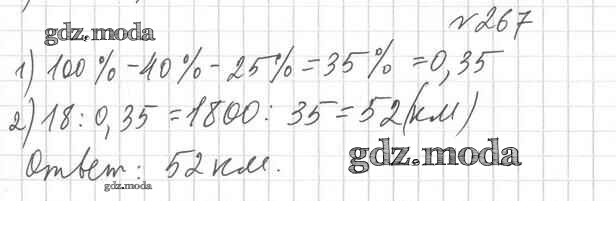 №267
gdz.moda
1) 100% - 40% - 25% = 35% = 0,35
2) 18 : 0,35 = 1800 : 35 = 52 (км)
gdz.moda
Ответ: 52 км.
gdz.moda